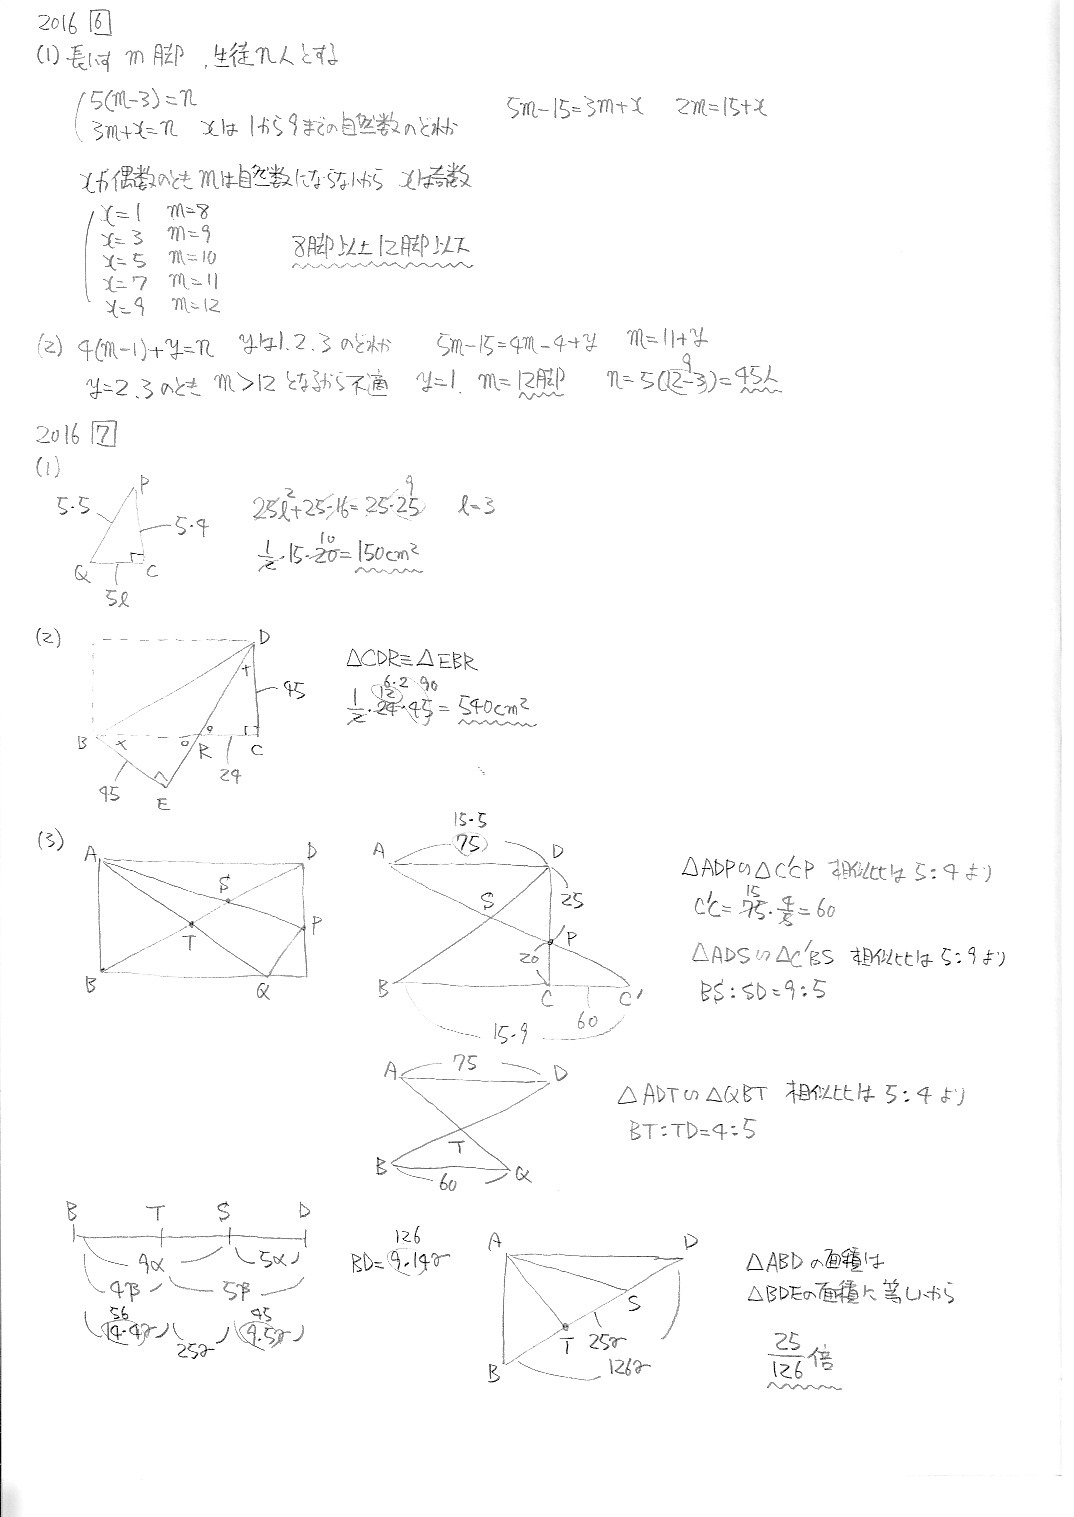 2016 6
(1) 長いす m脚, 生徒n人とする
5(m-3)=n
3m+x=n xは1から9までの自然数のどれか
5m-15=3m+x 2m=15+x
xが偶数のときmは自然数にならないから xは奇数
x=1 m=8
x=3 m=9
x=5 m=10
x=7 m=11
x=9 m=12
8脚以上12脚以下
(2) 4(m-1)+y=n yは1.2.3のどれか 5m-15=4m-4+y m=11+y
y=2.3のとき m>12となるから不適 y=1. m=12脚 n=5(12-3)=45人
9
2016 7
(1)
P
5·5
5·4
Q
C
5l
25l²+25·16=25·25 l=3
9
1/2·15·20=150cm²
10
(2)
D
×
45
B
×
R
C
24
45
E
△CDR≡△EBR
6·2 90
12
1/2·24·45=540cm²
(3)
A
D
S
P
T
B
Q
15·5
75
A
D
S
25
P
20
B
C
C'
60
15·9
△ADP∽△C'CP 相似比は5:4より
15
C'C=75·4/5=60
△ADS∽△C'BS 相似比は5:9より
BS:SD=9:5
A
75
D
T
B
60
Q
△ADT∽△QBT 相似比は5:4より
BT:TD=4:5
B T S D
9α 5α
4β 5β
56 45
14·4γ 25γ 9·5γ
126
BD=9·14γ
A
D
S
T
25γ
B
126γ
△ABDの面積は
△BDEの面積に等しいから
25/126倍